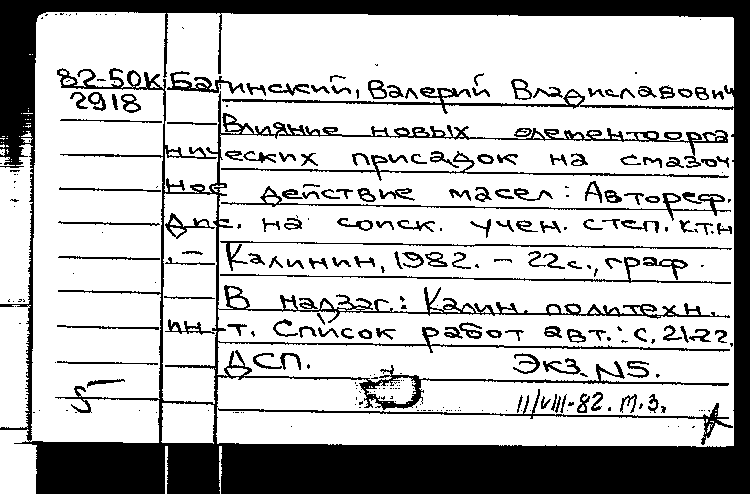 82-50К Багинский, Валерий Владиславович
2918
Влияние новых элементоорга
нических присадок на смазоч
ное действие масел: Автореф.
дис. на соиск. учен. степ. к.т.н
. – Калинин, 1982. – 22с., граф.
В надзаг.: Калин. политехн.
ин-т. Список работ авт.: с. 21-22.
ДСП. Экз. N5.
5
11/VIII-82. М.З.